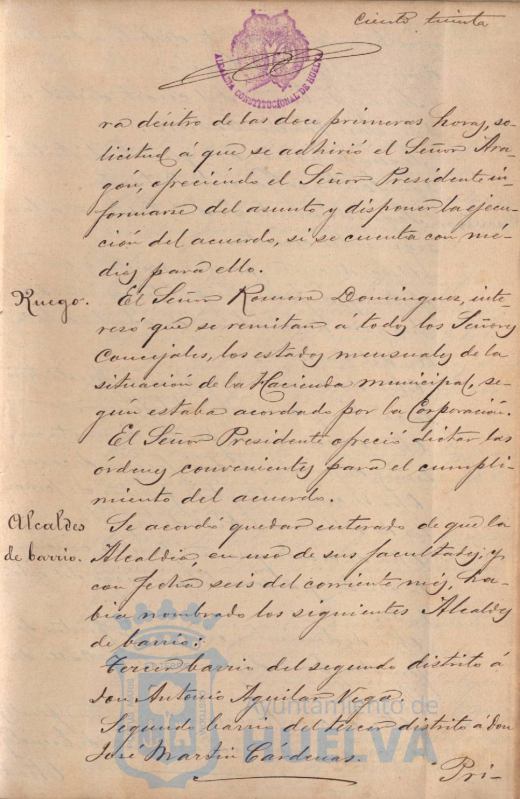 Ciento treinta
ALCALDIA CONSTITUCIONAL DE HUELVA
ra dentro de las doce primeras horas, so-
licitud á que se adhirió el Señor Ara-
gón, ofreciéndo el Señor Presidente in-
formarse del asunto y disponer la ejecu-
ción del acuerdo, si se cuenta con mé-
dios para ello.
Ruego.
El Señor Romero Dominguez, inte-
resó que se remitan á todos los Señores
Concejales, los estados mensuales de la
situación de la Hacienda municipal, se-
gún estaba acordado por la Corporación.
El Señor Presidente ofreció dictar las
órdenes convenientes para el cumpli-
miento del acuerdo.
Alcaldes
de barrio.
Se acordó quedar enterado de que la
Alcaldía, en uso de sus facultades, y
con fecha seis del corriente mes, ha-
bia nombrado los siguientes Alcaldes
de barrio:
Tercer barrio del segundo distrito á
don Antonio Aguilar Vega.
Segundo barrio del tercer distrito á don
José Martin Cárdenas.
Pri-
Ayuntamiento de
HUELVA